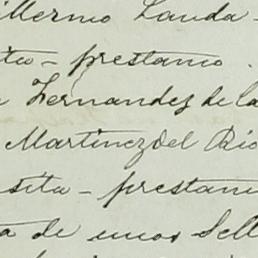 illermo Landa
sita - prestamo.
Fernandez de la
Martinez del Rio
sita - prestam
a de unos Sell